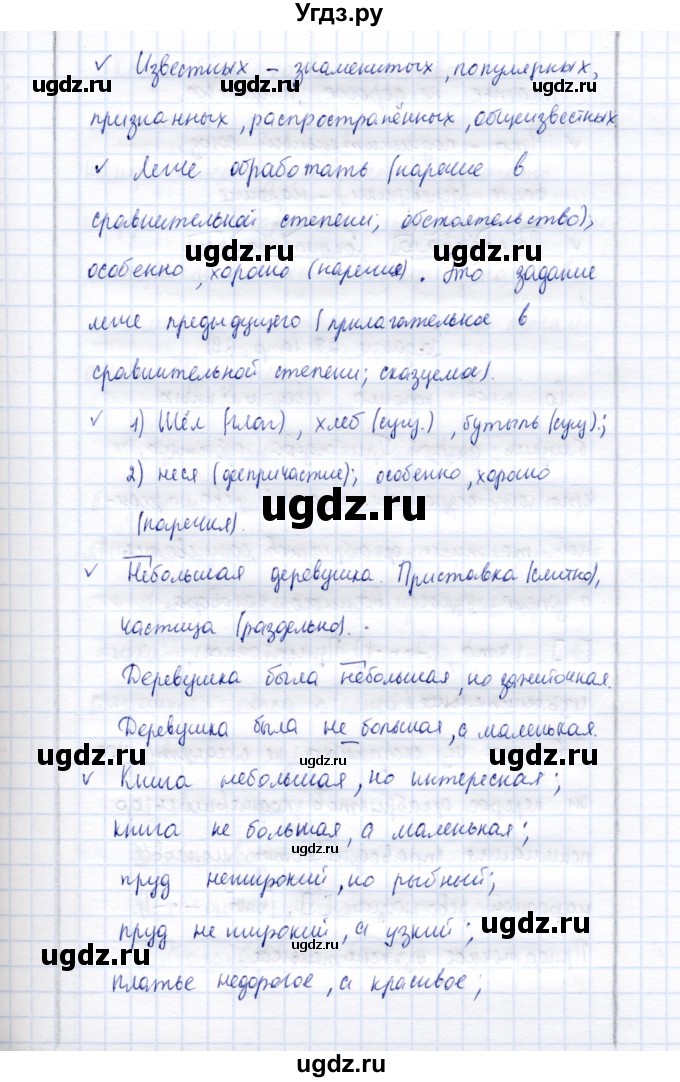 Угдз.ру
✓ Известных – знаменитых, популярных,
признанных, распространённых, общеизвестных
✓ Легче обработать (наречие в
сравнительной степени, обстоятельство);
особенно, хорошо (наречия). Это задание
легче предыдущего (прилагательное в
сравнительной степени; сказуемое).
✓ 1) Шёл (глаг), хлеб (сущ.), бутыль (сущ).;
2) неся (деепричастие); особенно, хорошо
(наречия).
✓ Небольшая деревушка. Приставка (слитно),
частица (раздельно).
Деревушка была небольшая, но зажиточная.
Деревушка была не большая, а маленькая.
✓ Книга небольшая, но интересная;
книга не большая, а маленькая;
пруд неширокий, но рыбный;
пруд не широкий, а узкий;
платье недорогое, а красивое;
ugdz.ru
ugdz.ru
ugdz.ru
ugdz.ru
ugdz.ru
ugdz.ru
ugdz.ru
ugdz.ru
ugdz.ru
ugdz.ru
ugdz.ru
ugdz.ru
ugdz.ru
ugdz.ru